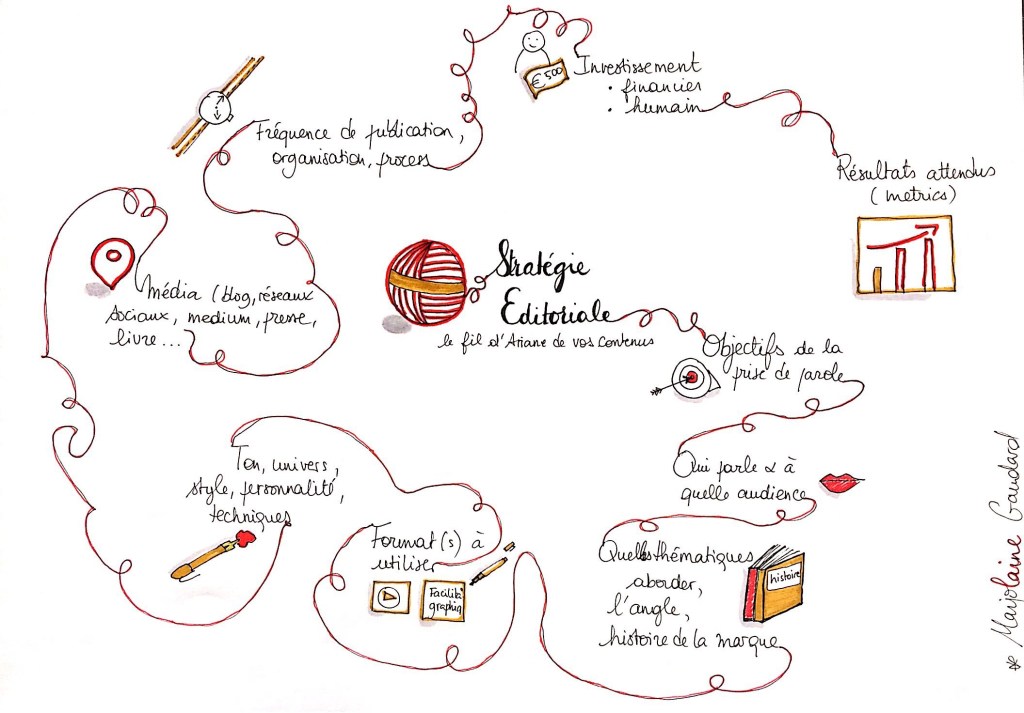 Stratégie
Editoriale
le fil d'Ariane de vos contenus
Objectifs de la
prise de parole
Qui parle & à
quelle audience
Quelles thématiques
aborder,
l'angle,
histoire de la marque
histoire
Format(s) à
utiliser
Facilita°
graphiq
Ton, univers,
style, personnalité,
techniques
média (blog, réseaux
sociaux, medium, presse,
livre...
Fréquence de publication,
organisation, process
€ 500
Investissement
• financier
• humain
Résultats attendus
(metrics)
* Marjolaine Gaudard